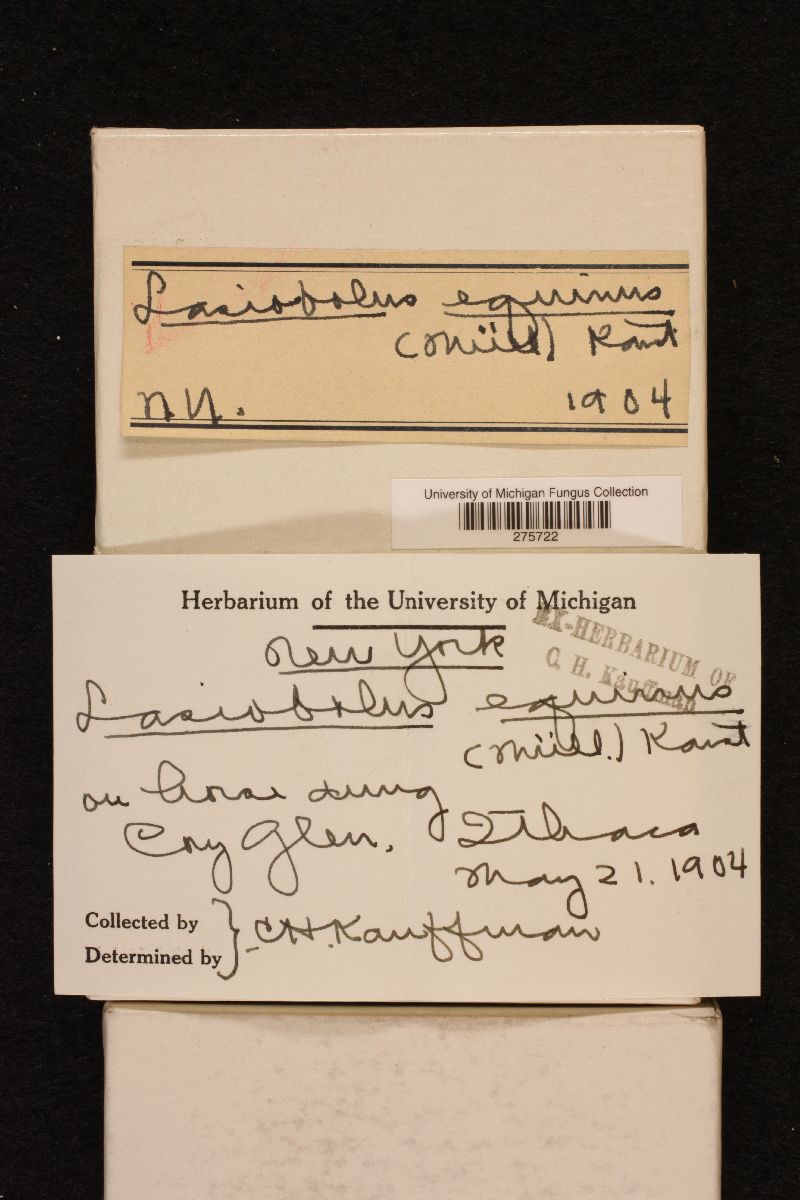 Lasiobolus equinus
(Müll) Karst
N.Y. 1904
University of Michigan Fungus Collection
275722
Herbarium of the University of Michigan
New York
EX-HERBARIUM OF
C. H. Kauffman
Lasiobolus equinus
(Müll.) Karst
on horse dung
Coy Glen, Ithaca
May 21. 1904
Collected by
Determined by } C.H. Kauffman